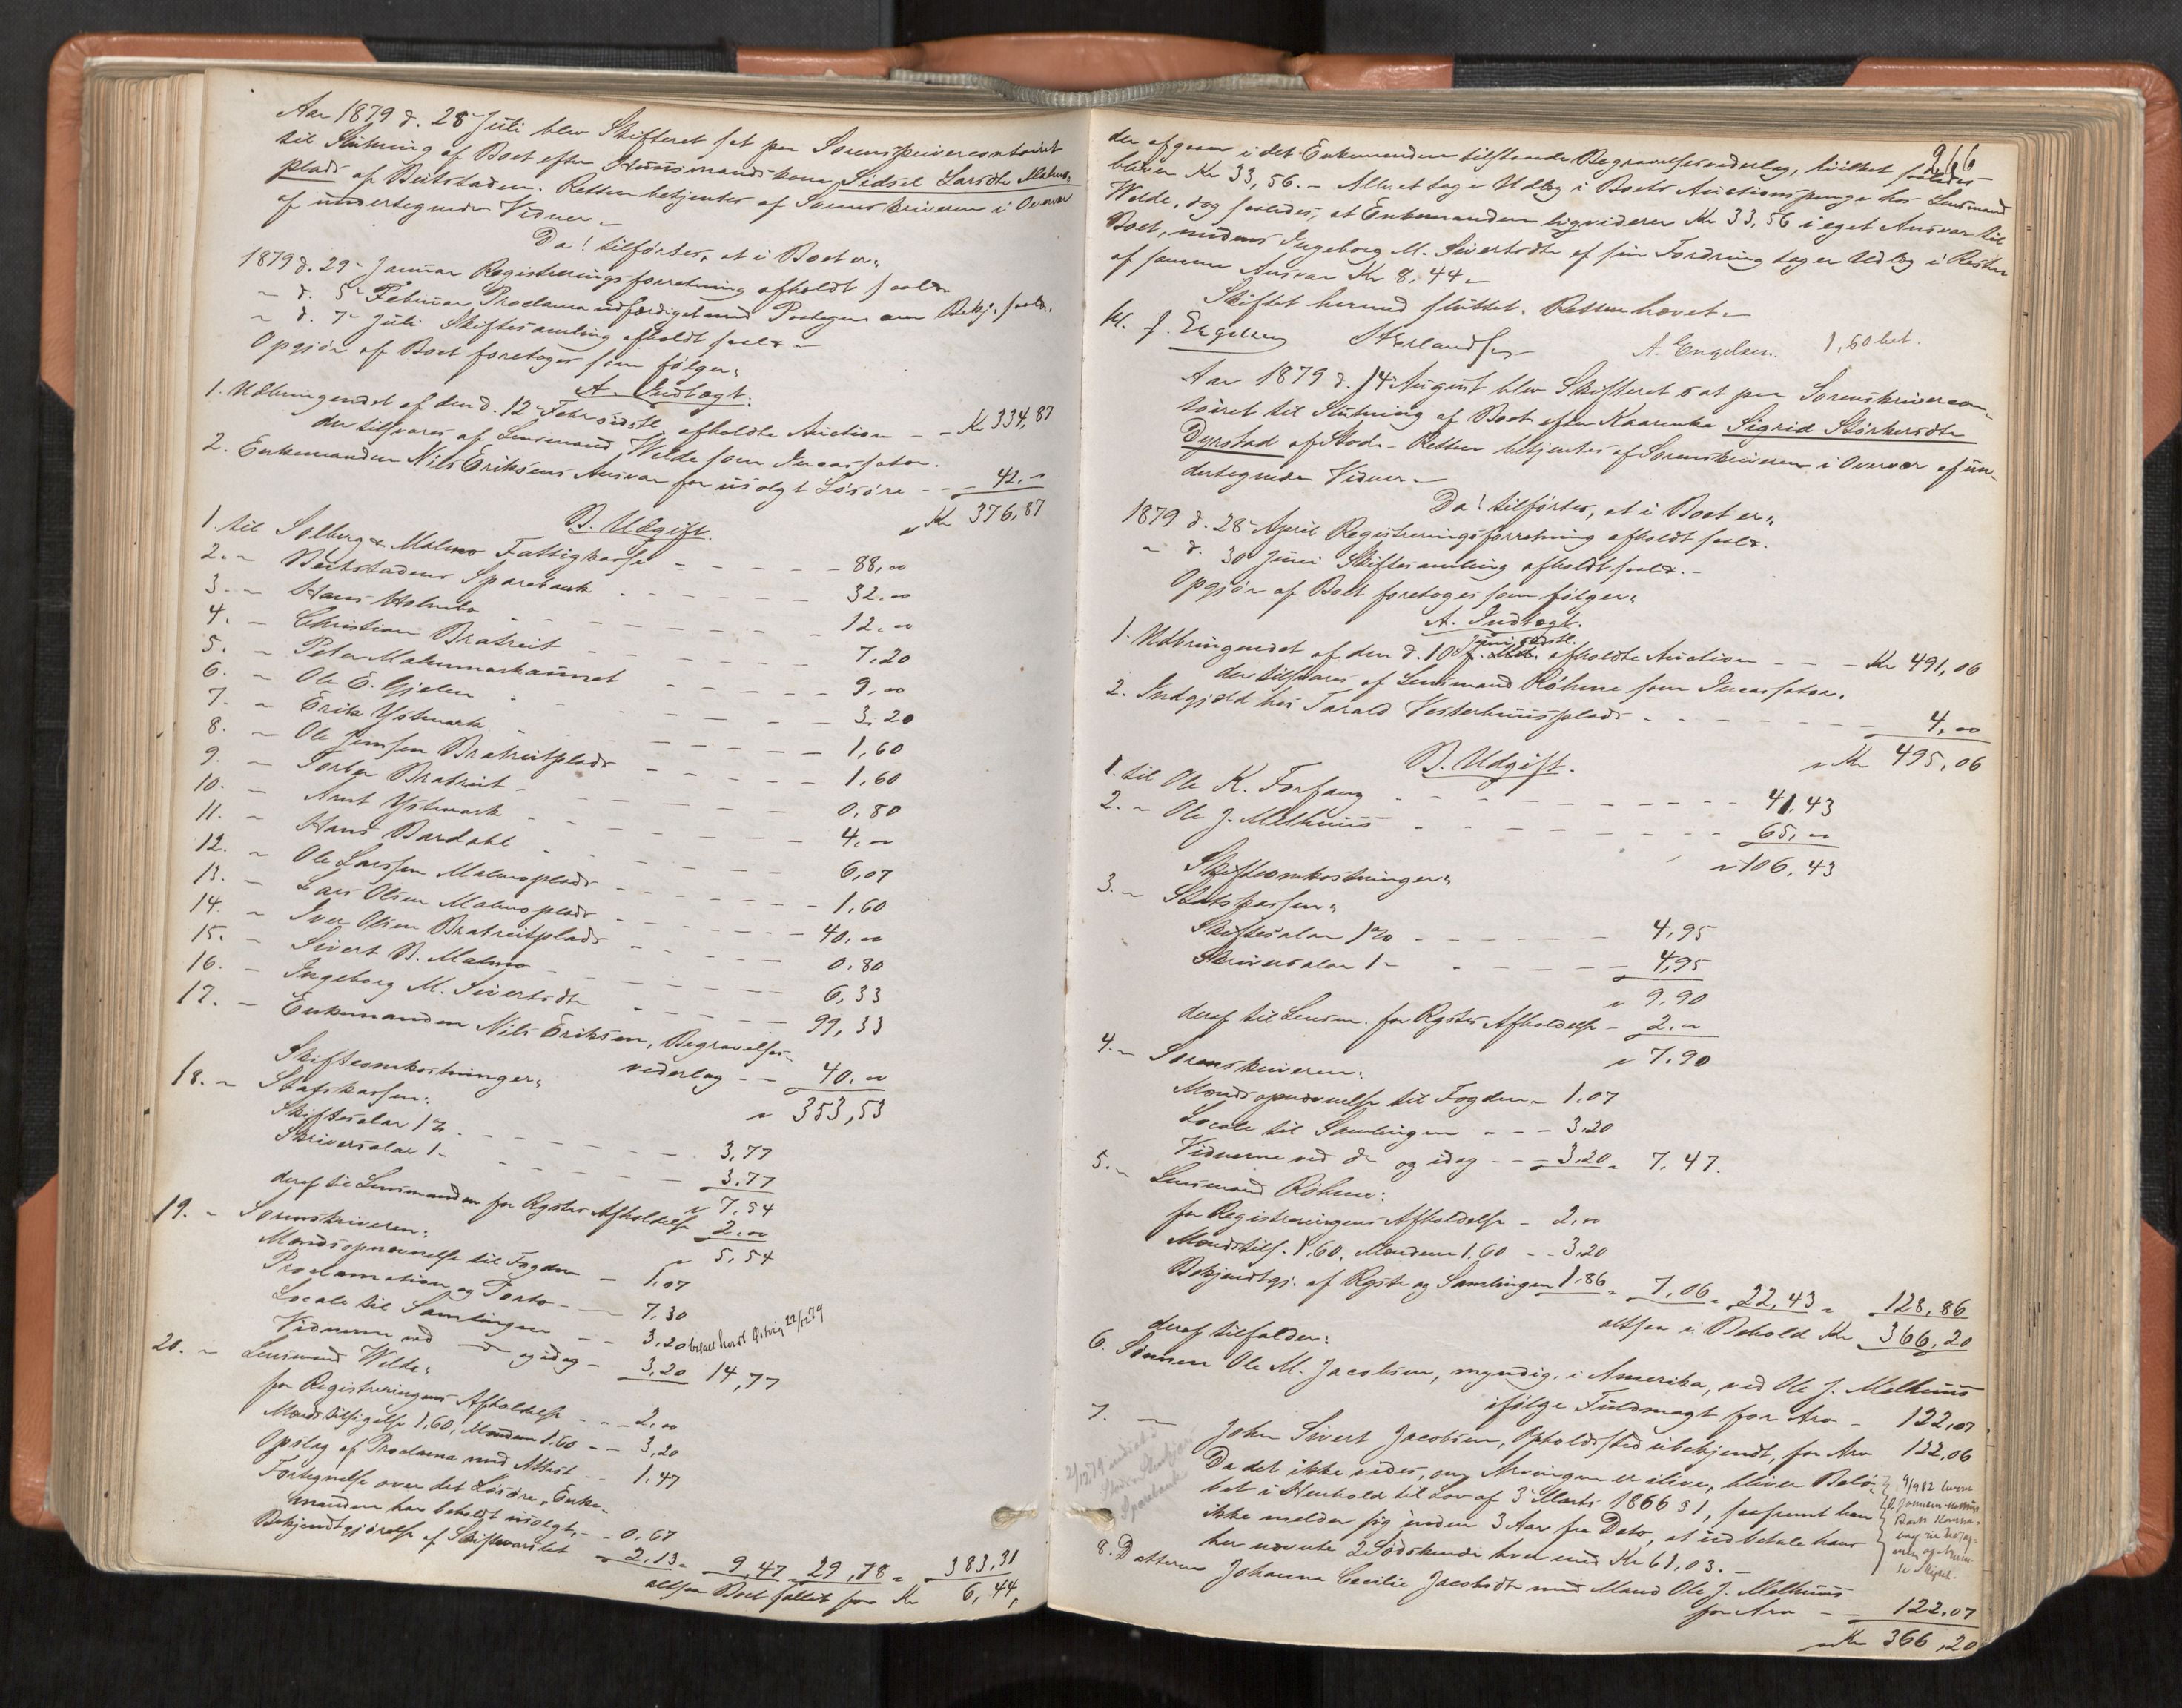 Aar 1879 d. 28 Juli blev Skifteret sat paa Sorenskrivercontoiret
til Slutning af Boet efter Huusmandskone Sidsel Larsdtr Malmo-
plads af Beitstaden. Retten betjentes af Sorenskriveren i Overvær
af undertegnede Vidner.
Da! tilførtes, at i Boet er:
1879 d. 29 Januar Registreringsforretning afholdt saal.
" d. 5 Februar Proclama udfærdiget med Paategn. om Bekj. saal.
" d. 7 Juli Skiftesamling afholdt saal.
Opgjør af Boet foretages som følger:
A. Indtægt.
1. Udbringendet af den d. 12 Febr. sidstl. afholdte Auction - - Kr 334,87
der tilsvares af Lensmand Welde som Incassator.
2. Enkemanden Nils Eriksens Ansvar for usolgt Løsøre - - 42,"
" Kr 376,87
B. Udgift.
1. til Solberg & Malmo Fattigkasse - - 88,"
2. " Beitstadens Sparebank - - 32,"
3. " Hans Holmbo - - 12,"
4. " Christian Bratreit - - 7,20
5. " Peter Malmmarkaunet - - 9,"
6. " Ole E. Gjelen - - 3,20
7. " Erik Ystmark - - 1,60
8. " Ole Jensen Bratreitplads - - 1,60
9. " Torber Bratreit - - 0,80
10. " Arnt Ystmark - - 4,"
11. " Hans Bardahl - - 6,07
12. " Ole Larssen Malmoplads - - 1,60
13. " Lars Olsen Malmoplads - - 40,"
14. " Iver Olsen Bratreitplads - - 0,80
15. " Sivert B. Malmo - - 6,33
16. " Ingeborg M. Sivertsdtr - - 99,33
17. " Enkemanden Nils Eriksen, Begravelses-
vederlag - - 40,"
" 353,53
Skifteomkostninger:
18. " Statskassen:
Skiftesalar 1% - - 3,77
Skriversalar 1 " - - 3,77
" 7,54
deraf til Lensmanden for Rgstrs Afholdelse 2,"
" 5,54
19. " Sorenskriveren:
Mændsopnævnelse til Fogden - 1,07
Proclamation og Porto - 7,30
Locale til Samlingen - - 3,20 betalt 22/12 79
Vidnerne ved do og idag - 3,20 14,77
20. " Lensmand Welde:
for Registreringens Afholdelse - - 2,"
Mændstilsigelse 1,60, Mændene 1,60 - - 3,20
Opslag af Proclama med Attest - - 1,47
Fortegnelse over det Løsøre, Enke-
manden har beholdt usolgt, - - 0,67
Bekjendtgjørelse af Skiftevarslet 2,13 " 9,47 " 29,78 " 383,31
altsaa Boet fallit for Kr 6,44,
266
der afgaar i det Enkemanden tilstaaede Begravelsesvederlag, hvilket saaledes
bliver Kr 33,56. - Alle at tage Udlæg i Boets Auctionspenge hos Lensmand
Welde, dog saaledes, at Enkemanden liqviderer Kr 33,56 i eget Ansvar til
Boet, medens Ingeborg M. Sivertsdtr af sin Fordring tager Udlæg i Resten
af samme Ansvar Kr 8,44.
Skiftet hermed sluttet. Retten hævet.
J. Engelsen Erlandsen A. Engelsen. 1,60 bet.
Aar 1879 d. 14 August blev Skifteret sat paa Sorenskrivercon-
toiret til Slutning af Boet efter Kaarenke Sigrid Størkersdtr
Dyrstad af Stod. - Retten betjentes af Sorenskriveren i Overvær af un-
dertegnede Vidner.
Da! tilførtes, at i Boet er:
1879 d. 28 April Registreringsforretning afholdt saal.
" d. 30 Juni Skiftesamling afholdt saal. -
Opgjør af Boet foretages som følger:
A. Indtægt.
Juni sidstl.
1. Udbringendet af den d. 10 afholdte Auction - - - Kr 491,06
der tilsvares af Lensmand Røhme som Incassator.
2. Indgjeld hos Tarald Vesterhuusplads - - 4,"
" Kr 495,06
B. Udgift.
1. til Ole K. Forfang - - 41,43
2. " Ole J. Melhuus - - 65,"
" 106,43
Skifteomkostninger:
3. " Statskassen:
Skiftesalar 1% - - 4,95
Skriversalar 1 " - - 4,95
" 9,90
deraf til Lensm. for Rgstrs Afholdelse - 2,"
" 7,90
4. " Sorenskriveren:
Mændsopnævnelse til Fogden - 1,07
Locale til Samlingen - - - 3,20
Vidnerne ved do og idag - - 3,20 " 7,47.
5. " Lensmand Røhme:
for Registreringens Afholdelse - 2,"
Mændstils. 1,60. Mændene 1,60 - - 3,20
Bekjendtgj. af Rgstr og Samlingen 1,86 " 7,06 " 22,43 " 128,86
altsaa i Behold Kr 366,20
deraf tilfalder:
6. Sønnen Ole M. Jacobsen, myndig, i Amerika, ved Ole J. Melhuus
ifølge Fuldmagt for Arv - 122,07
7. " John Sivert Jacobsen, Opholdssted ubekjendt, for Arv 122,06
Da det ikke vides, om Arvingen er ilive, bliver Belø-
bet i Henhold til Lov af 3 Marts 1866 § 1, saafremt han
ikke melder sig inden 3 Aar fra Dato, at udbetale hans
her nævnte 2 Sødskende hver med Kr 61,03. -
2/12 79 indsat i
Sparebank
8. Datteren Johanna Cecilie Jacobsdtr med Mand Ole J. Melhuus
for Arv - - 122,07
" Kr 366,20